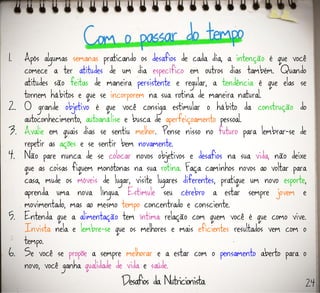 Com o passar do tempo
1. Após algumas semanas praticando os desafios de cada dia, a intenção é que você
comece a ter atitudes de um dia específico em outros dias também. Quando
atitudes são feitas de maneira persistente e regular, a tendência é que elas se
tornem hábitos e que se incorporem na sua rotina de maneira natural.
2. O grande objetivo é que você consiga estimular o hábito da construção do
autoconhecimento, autoanálise e busca de aperfeiçoamento pessoal.
3. Avalie em quais dias se sentiu melhor. Pense nisso no futuro para lembrar-se de
repetir as ações e se sentir bem novamente.
4. Não pare nunca de se colocar novos objetivos e desafios na sua vida, não deixe
que as coisas fiquem monótonas na sua rotina. Faça caminhos novos ao voltar para
casa, mude os móveis de lugar, visite lugares diferentes, pratique um novo esporte,
aprenda uma nova língua. Estimule seu cérebro a estar sempre jovem e
movimentado, mas ao mesmo tempo concentrado e consciente.
5. Entenda que a alimentação tem íntima relação com quem você é que como vive.
Invista nela e lembre-se que os melhores e mais eficientes resultados vem com o
tempo.
6. Se você se propõe a sempre melhorar e a estar com o pensamento aberto para o
novo, você ganha qualidade de vida e saúde.
Desafios da Nutricionista
24